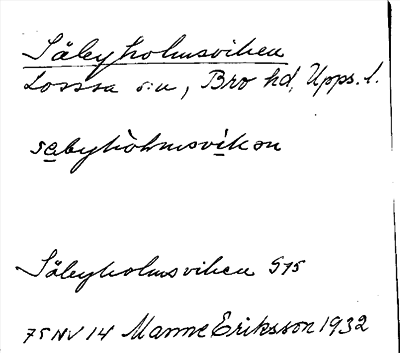 Säbyholmsviken
Lossa sn, Bro hd, Upps. l.
sɑbyhòlmsvikən
Säbyholmsviken S15
75 NV 14 Manne Eriksson 1932